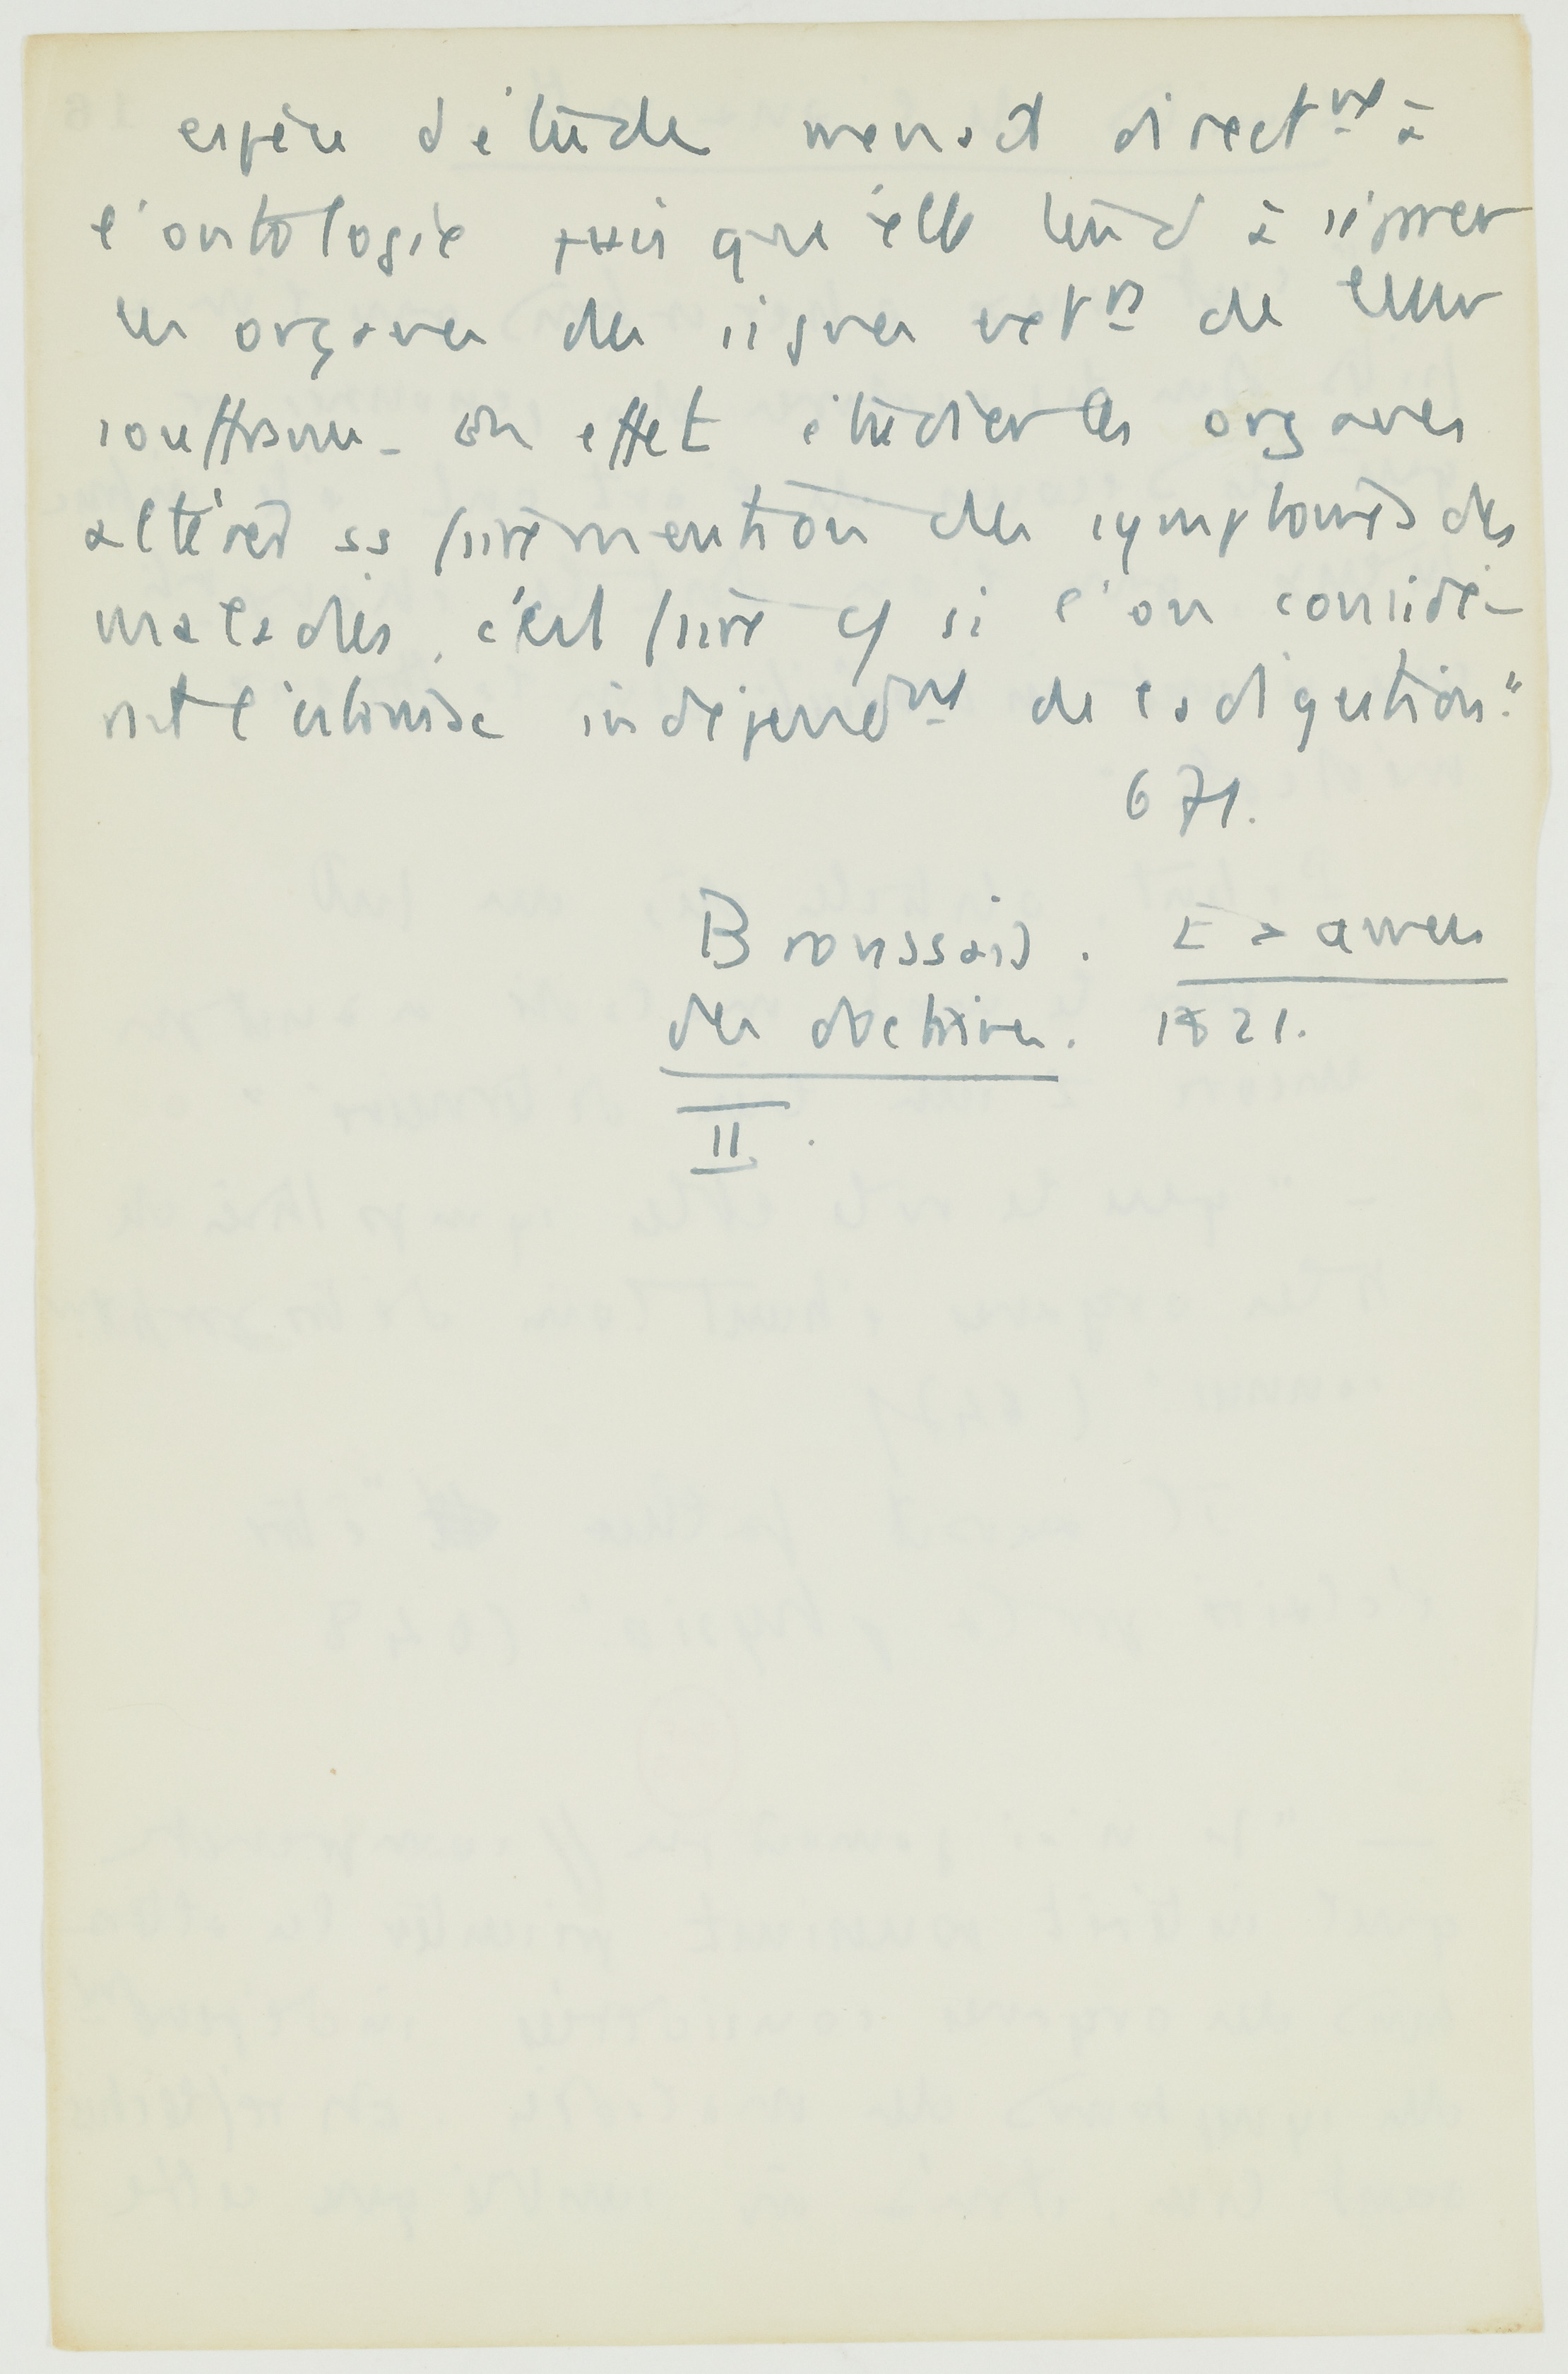 espèce d'étude menait direct^nt à
l'ontologie puis qu'elle tend à séparer
les organes des signes ext^rs de leur
souffrance. En effet étudier les organes
altérés ss faire mention des symptômes des
maladies, c'est faire cq si l'on considé-
rait l'estomac independ^nt de la digestion."
671.
Broussais. Examen
des doctrines. 1821.
II.